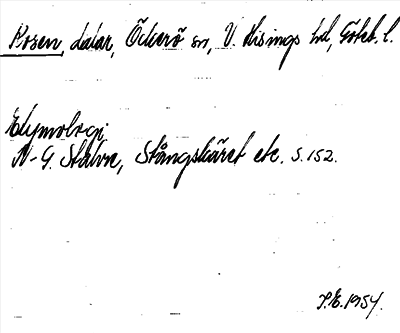 Rosen, dalar, Öckerö sn, V. Hisings hd, Göteb. l.
Etymologi.
N-G. Stahre, Stångskäret etc. s. 152.
P.E. 1954.